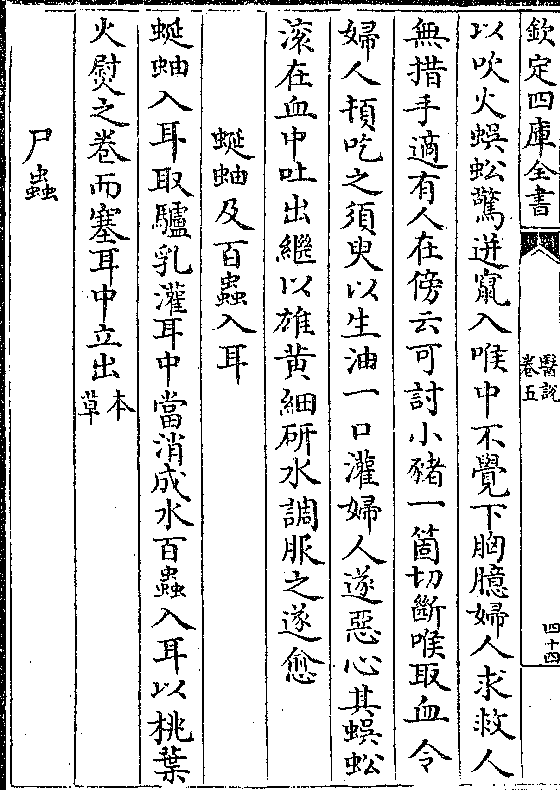 欽定四庫全書
醫說
卷五
四十四
以吹火蜈蚣驚迸竄入喉中不覺下胸臆婦人求救人
無措手適有人在傍云可討小豬一箇切斷喉取血令
婦人頓吃之須臾以生油一口灌婦人遂惡心其蜈蚣
滚在血中吐出繼以雄黄細研水調服之遂愈
蜒蚰及百蟲入耳
蜒蚰入耳取驢乳灌耳中當消成水百蟲入耳以桃葉
火熨之卷而塞耳中立出本草
尸蟲